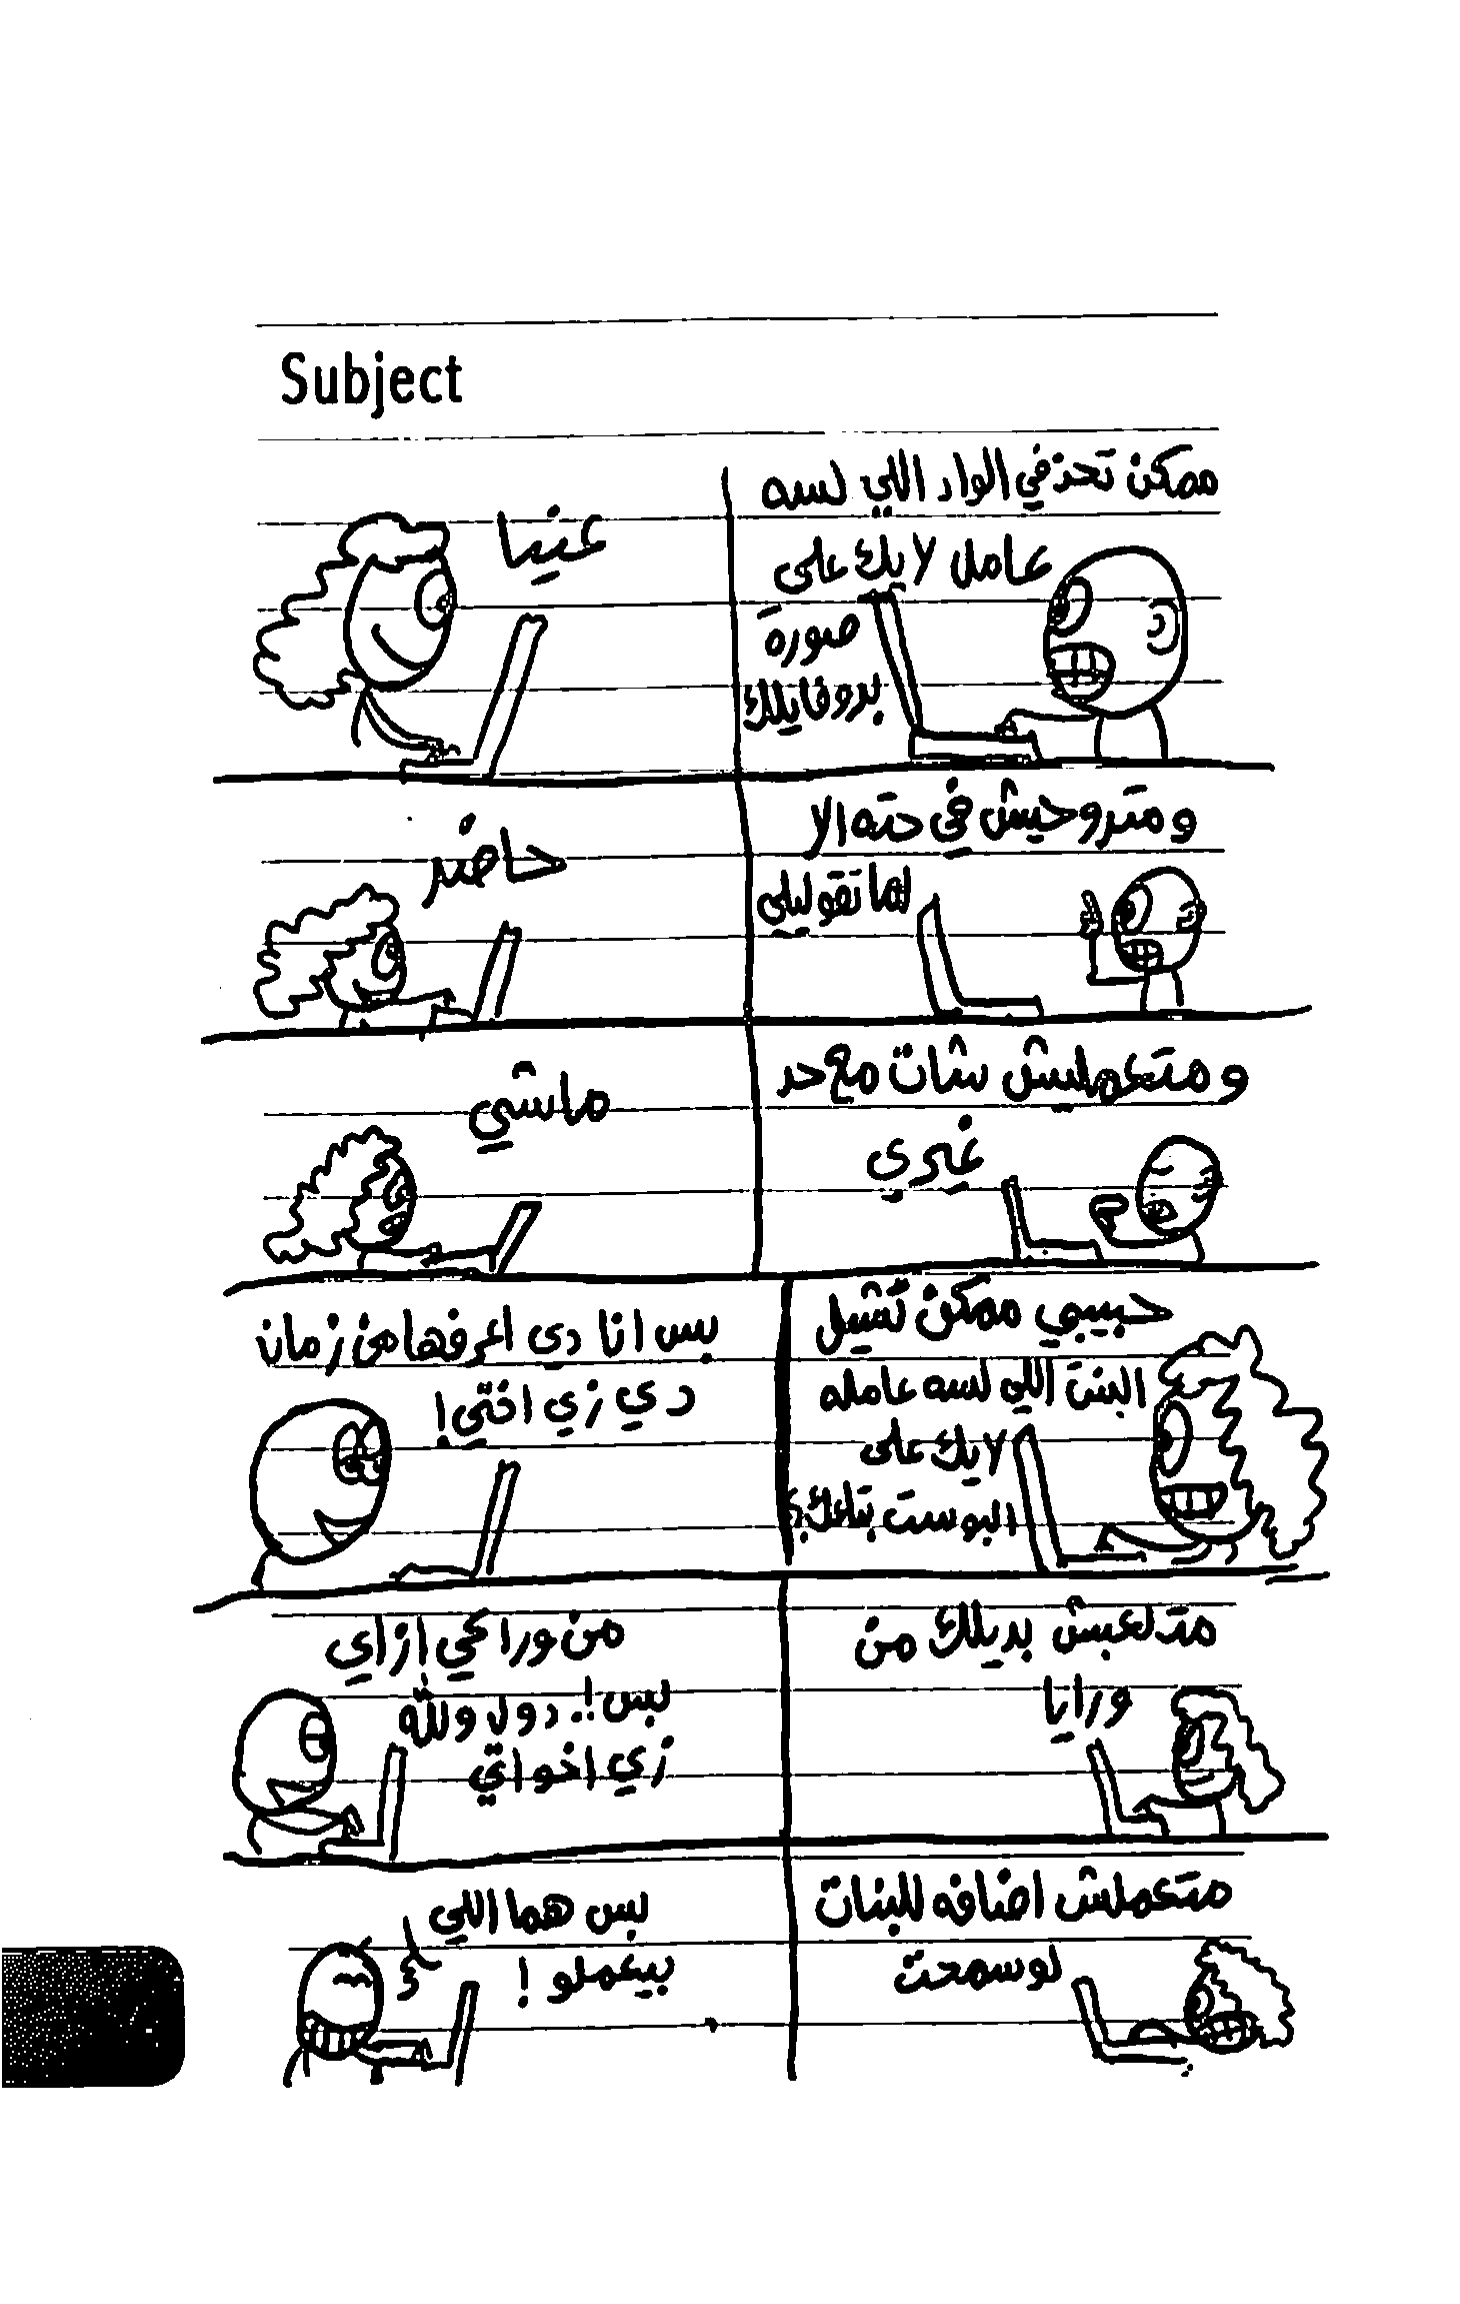 Subject
ممكن تحذفي الواد اللي لسه
عامل لايك على
صورة
بروفايلك
عنيا
ومتروحيش في حته الا
لما تقوليلي
حاضر
ومتعمليش شات مع حد
غيري
ماشي
حبيبي ممكن تشيل
البنت اللي لسه عامله
لايك على
البوست بتاعك؟
بس انا دي اعرفها من زمان
دي زي اختي!
متلعبش بديلك من
ورايا
من وراكي إزاي
بس!. دول والله
زي اخواتي
متعملش اضافه للبنات
لو سمحت
بس هما اللي
بيعملو!